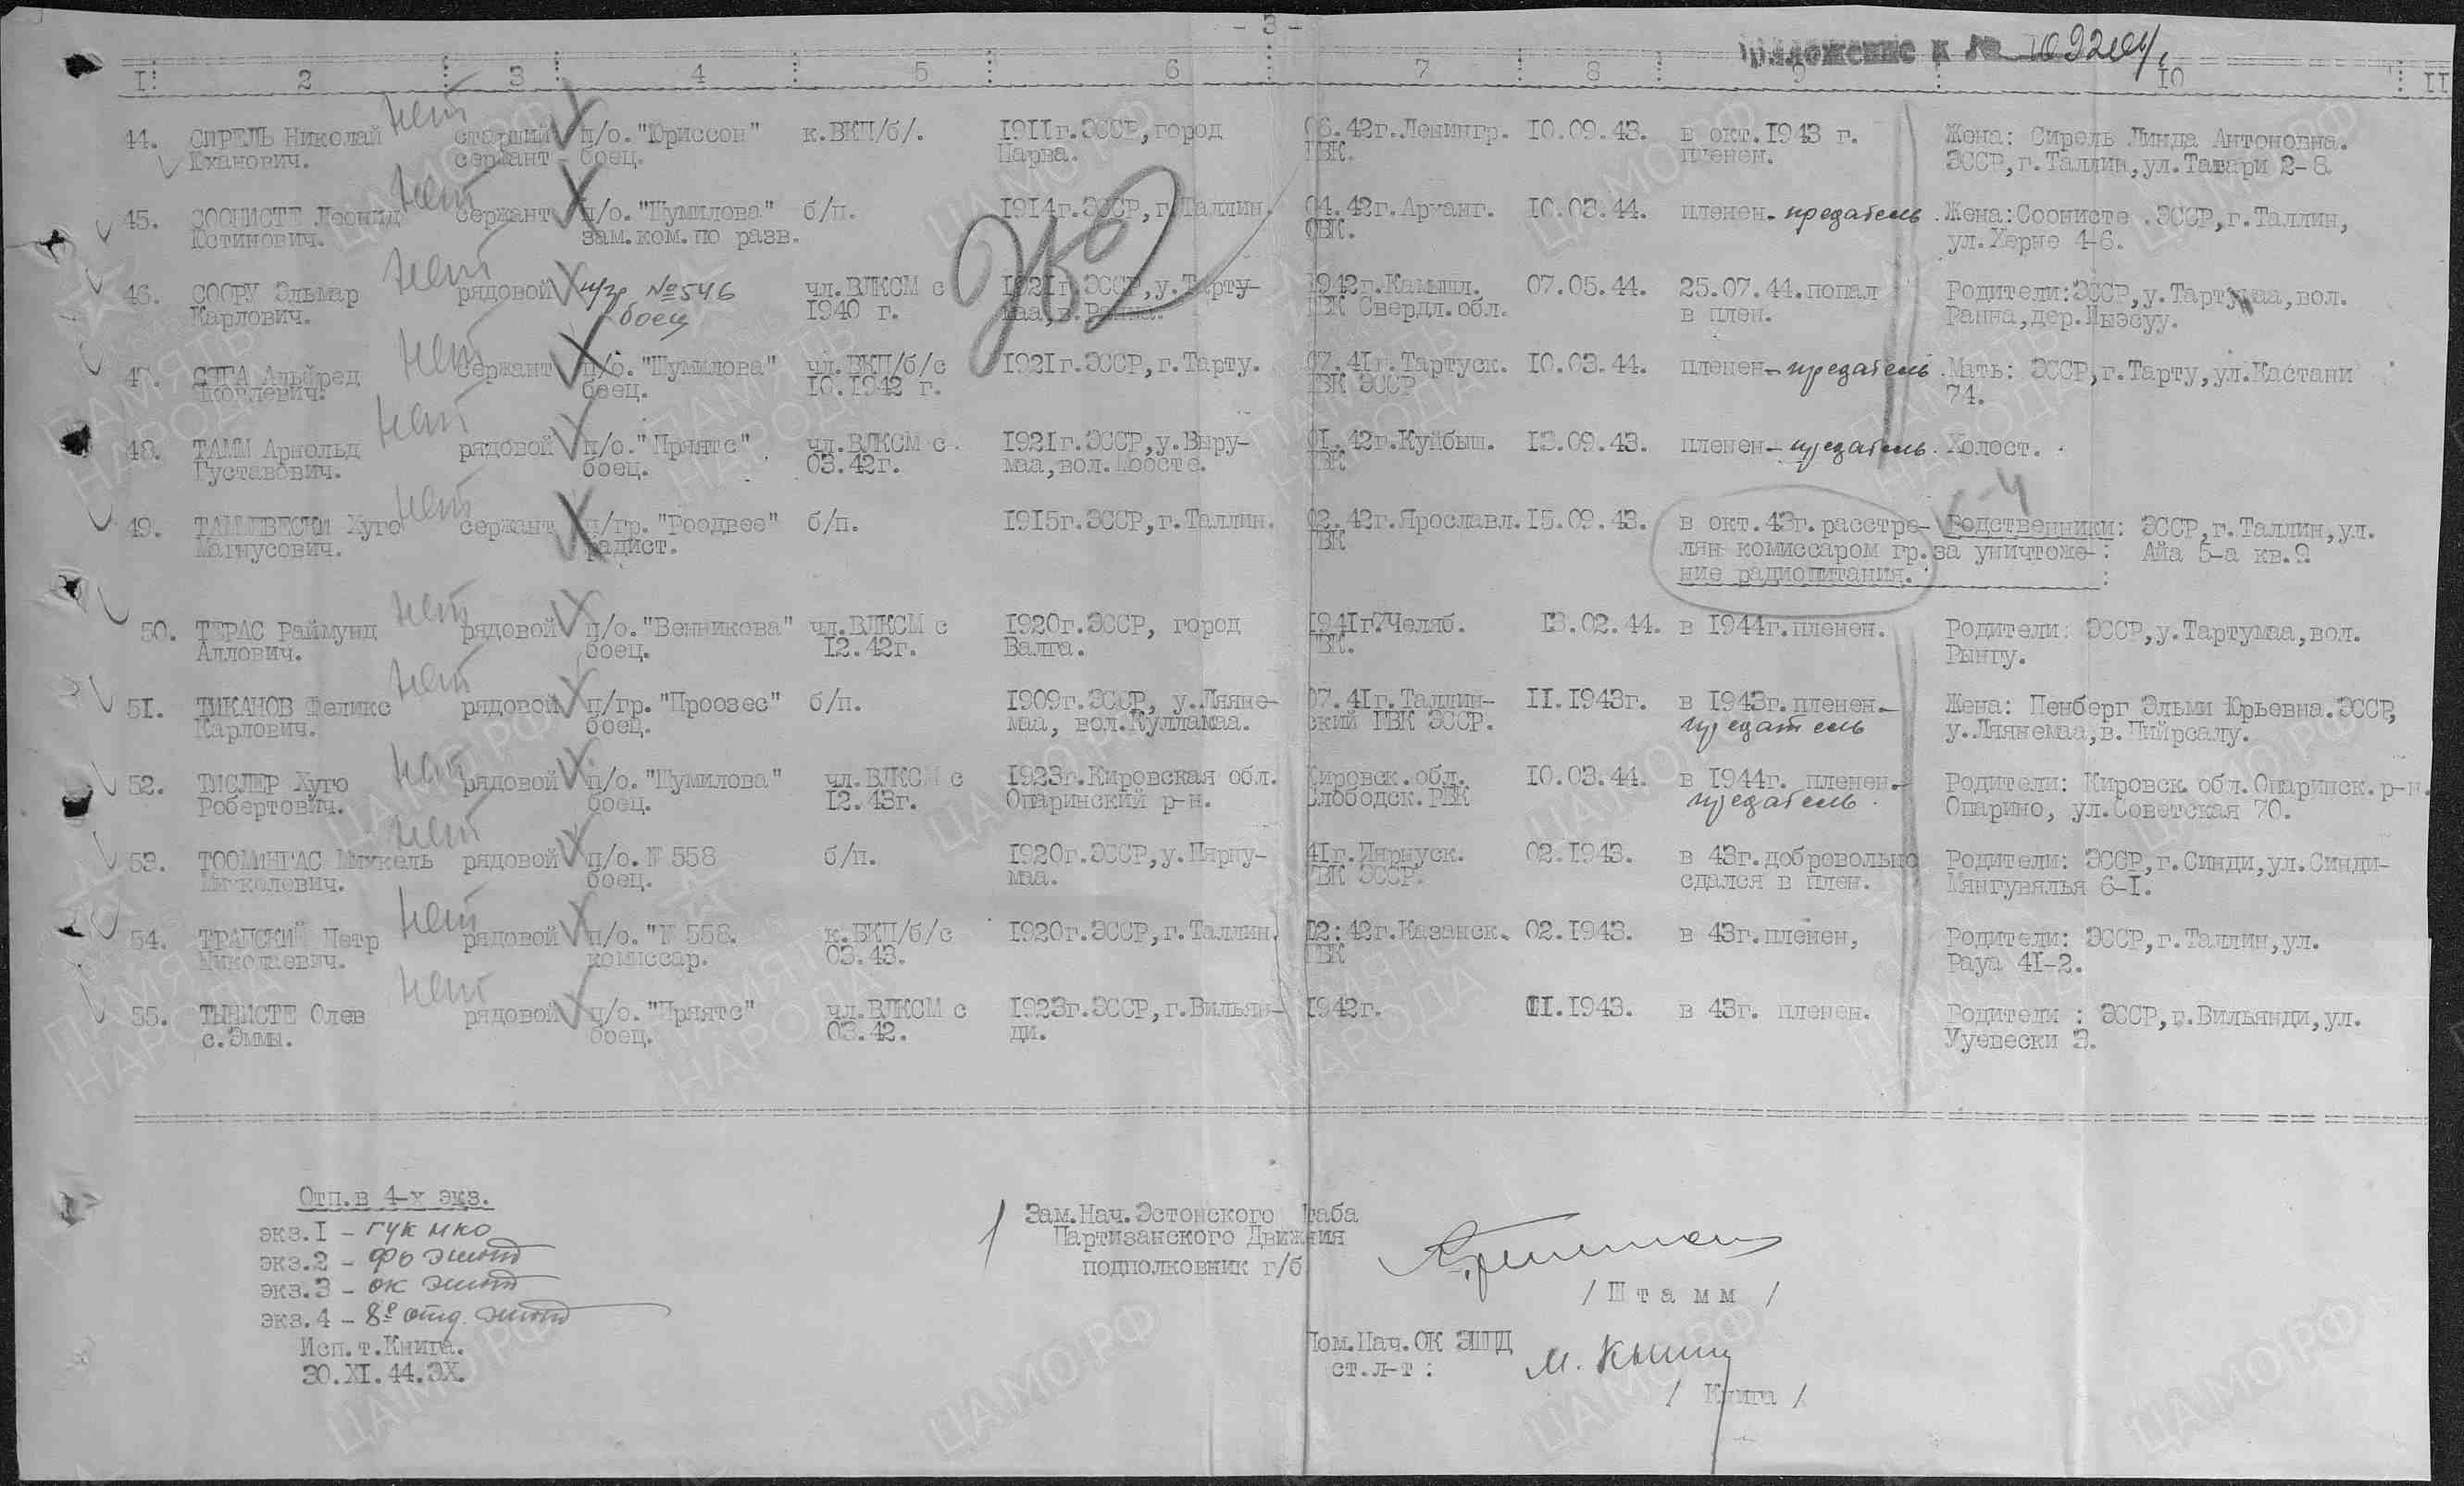 - 3 -
Приложение к № 109204
I 2 3 4 5 6 7 8 9 10 II
44. СИРЕЛЬ Николай нет старший п/о. "Юриссон" к.ВКП/б/. 1911г.ЭССР, город 06.42г.Ленингр. 10.09.43. в окт.1943 г. Жена: Сирель Линда Антоновна.
Юханович. сержант - боец. Нарва. ГВК. пленен. ЭССР, г.Таллин, ул.Татари 2-8
45. СООНИСТЕ Леонид нет сержант п/о. "Шумилова" б/п. 1914г.ЭССР, г.Таллин. 04.42г.Арханг. 10.03.44. пленен-предатель. Жена:Соонисте .ЭССР, г.Таллин,
Юстинович. зам.ком.по разв. ОВК. ул.Херне 4-6.
46. СООРУ Эльмар нет рядовой п/гр №546 чл.ВЛКСМ с 1921г.ЭССР, у.Тарту- 1942г.Камышл. 07.05.44. 25.07.44.попал Родители:ЭССР, у.Тартумаа, вол.
Карлович. боец 1940 г. маа, в.Ранна. ГВК Свердл.обл. в плен. Ранна, дер.
47. СЯГА Альфред нет сержант п/о. "Шумилова" чл.ВКП/б/с 1921г.ЭССР, г.Тарту. 07.41г.Тартуск. 10.03.44. пленен-предатель. Мать: ЭССР, г.Тарту, ул.Кастани
Яковлевич. боец. 10.1942 г. ГВК ЭССР 74.
48. ТАММ Арнольд нет рядовой п/о."Пряятс" чл.ВЛКСМ с 1921г.ЭССР, у.Выру- 01.42г.Куйбыш. 13.09.43. пленен-предатель. Холост.
Густавович. боец. 03.42г. маа, вол.Моосте. ГВК
49. ТАММЕВЕСКИ Хуго нет сержант п/гр. "Роодвее" б/п. 1915г.ЭССР, г.Таллин. 02.42г.Ярославл. 15.09.43. в окт.43г.расстре- Родственники: ЭССР, г.Таллин, ул.
Магнусович. радист. ГВК лян комиссаром гр.за уничтоже-: Айа 5-а кв.9
ние радиопитания. :
50. ТЕРАС Раймунд нет рядовой п/о."Венникова" чл.ВЛКСМ с 1920г.ЭССР, город 1941г.Челяб. 13.02.44. в 1944г.пленен. Родители: ЭССР, у.Тартумаа, вол.
Аллович. боец. 12.42г. Валга. ГВК. Рынгу.
51. ТИКАНОВ Феликс нет рядовой п/гр."Проозес" б/п. 1909г.ЭССР, у.Ляяне- 07.41г.Таллин- II.1943г. в 1943г.пленен- Жена: Пенберг Эльми Юрьевна.ЭССР,
Карлович. боец. маа, вол.Кулламаа. ский ГВК ЭССР. предатель у.Ляянемаа, в.Пийрсалу.
52. ТИСЛЕР Хуго нет рядовой п/о. "Шумилова" чл.ВЛКСМ с 1923г.Кировская обл. Кировск.обл. 10.03.44. в 1944г. пленен- Родители: Кировск.обл.Опаринск.р-н.
Робертович. боец. 12.43г. Опаринский р-н. Слободск.РВК предатель. Опарино, ул.Советская 70.
53. ТООМИНГАС Михкель нет рядовой п/о.№ 558 б/п. 1920г.ЭССР, у.Пярну- 41г.Пярнуск. 02.1943. в 43г.добровольно Родители: ЭССР, г.Синди, ул.Синди-
Михкелевич. боец. маа. ГВК ЭССР. сдался в плен. Мянгувялья 6-I.
54. ТРАПСКИЙ Петр нет рядовой п/о."№ 558. к.ВКП/б/с 1920г.ЭССР, г.Таллин. 12.42г.Казанск. 02.1943. в 43г.пленен, Родители: ЭССР, г.Таллин, ул.
Николаевич. комиссар. 03.43. ГВК Рауа 41-2.
55. ТЫНИСТЕ Олев нет рядовой п/о. "Пряятс" чл.ВЛКСМ с 1923г.ЭССР, г.Вильян- 1942г. II.1943. в 43г. пленен. Родители : ЭССР, г.Вильянди, ул.
с.Эммы. боец. 03.42. ди. Ууевески 3.
Отп.в 4-х экз.
экз.I - ГУК НКО
экз.2 - ФО ЭШПД
экз.3 - ОК ЭШПД
экз.4 - 8й отд. ЭШПД
Исп.т.Книга.
30.XI.44.ЭХ.
Зам.Нач.Эстонского Штаба
Партизанского Движения
подполковник г/б
/ Штамм /
Пом.Нач.ОК ЭШПД
ст.л-т :
/ Книга /
ЦАМО.РФ
ПАМЯТЬ НАРОДА